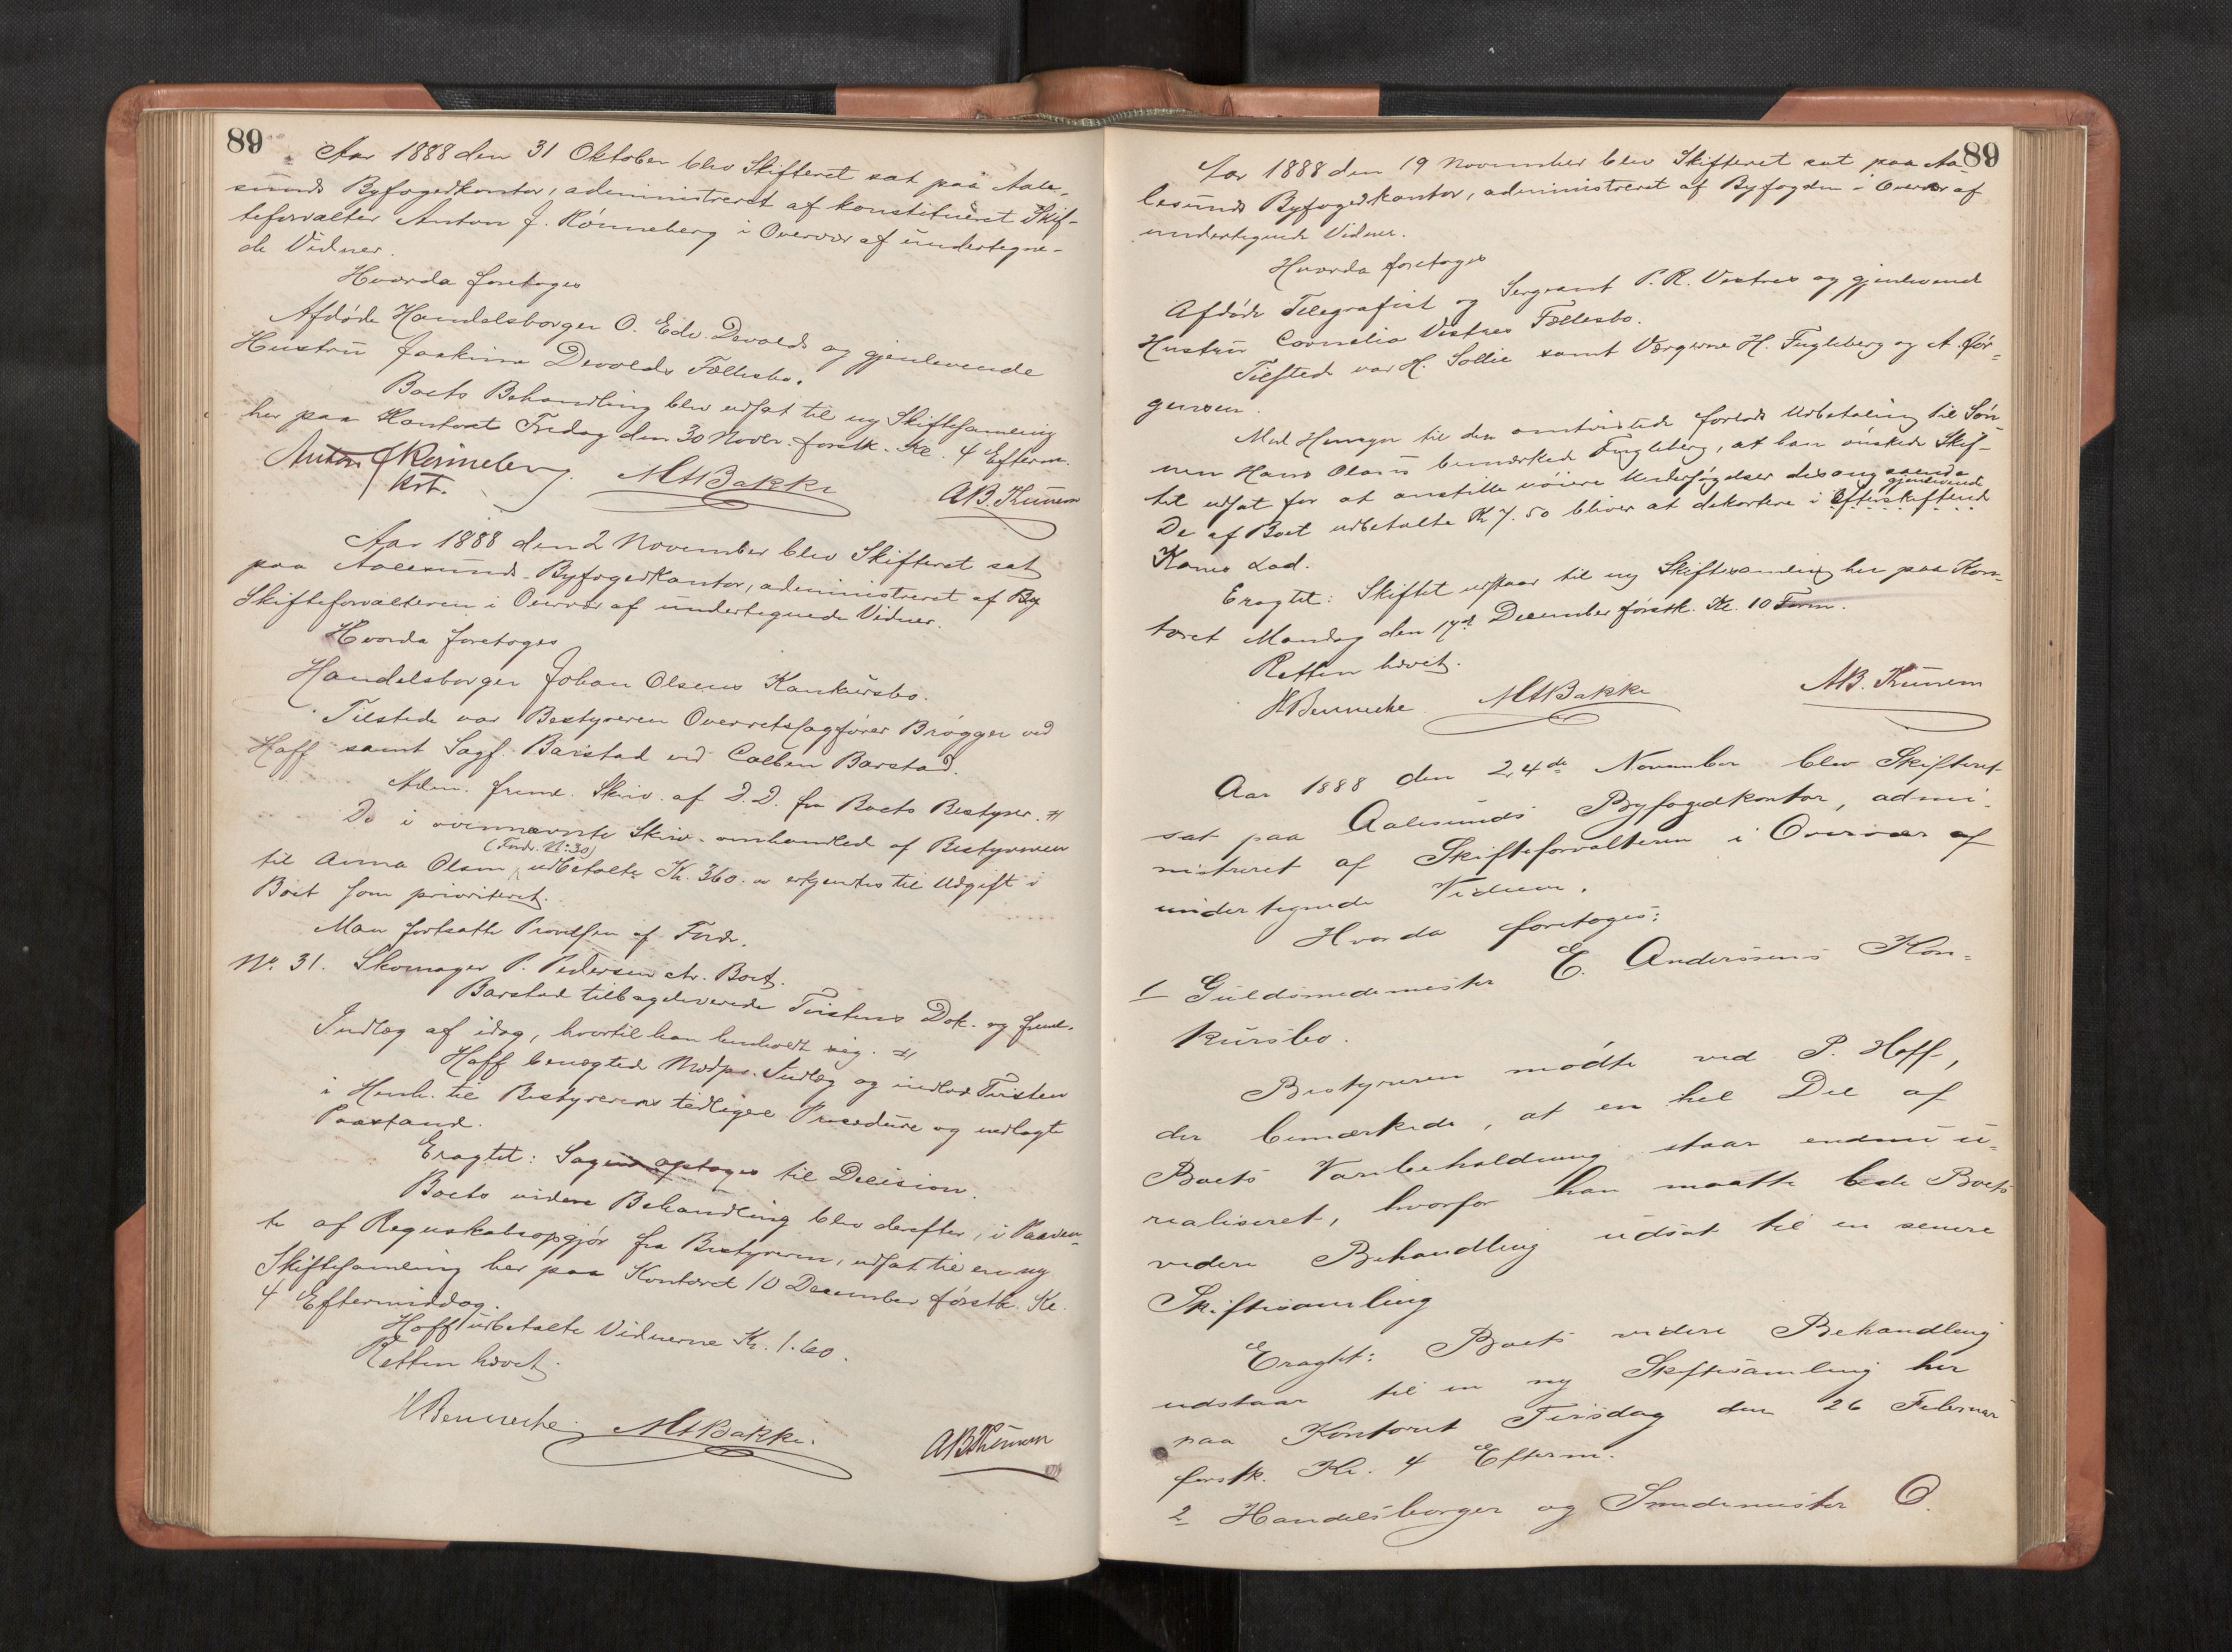 89
Aar 1888 den 31 Oktober blev Skifteret sat paa Aale-
sunds Byfogedkontor, administreret af konstitueret Skif-
teforvalter Anton J. Rönneberg i Overvær af undertegne-
de Vidner.
Hvorda foretoges
Afdøde Handelsborger O. Edv. Devolds og gjenlevende
Hustru Joakime Devolds Fællesbo.
Boets Behandling blev udsat til ny Skiftesamling
her paa Kontoret Fredag den 30 Novbr. førstk. Kl. 4 Efterm.
Anton J Rönneberg. MABakke AB. Thunem
kst.
Aar 1888 den 2 November blev Skifteret sat
paa Aalesunds Byfogedkontor, administreret af By
Skifteforvalteren i Overvær af undertegnede Vidner.
Hvorda foretoges
Handelsborger Johan Olsens Konkursbo.
Tilstede var Bestyreren Overretssagfører Brøgger ved
Hoff samt Sagf. Barstad ved Colben Barstad.
Adm. freml. Skriv. af D. D. fra Boets Bestyrer. #
De i ovennævnte Skriv. omhandled af Bestyreren
(Fordr. N: 30)
til Anna Olsen udbetalte Kr. 360. erkjendtes til Udgift i
Boet som prioriteret.
Man fortsatte Prøvelsen af Fordr.
No. 31. Skomager P. Pedersen ctr. Boet.
Barstad tilbageleverede Tvistens Dok. og freml.
Indlæg af idag, hvortil han henholdt sig. #
Hoff benægtede Modps. Indlæg og indlod Tvisten
i Henh. til Bestyrerens tidligere Procedure og nedlagte
Paastand.
Eragtet: Sagen optoges til Decision.
Boets videre Behandling blev derefter, i Paaven-
te af Regnskabsopgjør fra Bestyreren, udsat til en ny
Skiftesamling her paa Kontoret 10 December førstk. Kl.
4 Eftermiddag.
Hoff udbetalte Vidnerne Kr. 1.60.
Retten hævet.
HBenneche. MABakke. ABThunem
89
Aar 1888 den 19 November blev Skifteret sat paa Aa-
lesunds Byfogedkontor, administreret af Byfogden i Overvær af
undertegnede Vidner.
Hvorda foretoges
Afdøde Telegrafist og Sergeant P. R. Vestres og gjenlevend
Hustru Cornelia Vestres Fællesbo.
Tilsted var H. Sollie samt Værgerne H. Fugleberg og A. Jör-
gensen.
Med Hensyn til den omtvistede forlods Udbetaling til Søn-
nen Hans Olaus bemærked Fugleberg, at han ønskede Skif-
tet udsat for at anstille nöiere Undersøgelser desangaaende
gjenlevende
De af Boet udbetalte Kr 7.50 bliver at dekortere i Efterskiftend
Kones Lod.
Eragtet: Skiftet udstaar til ny Skiftesamling her paa Kon-
toret Mandag den 17d December førstk. Kl. 10 Form.
Retten hævet.
HBenneche MABakke AB. Thunem
Aar 1888 den 24de November blev Skifteret
sat paa Aalesunds Byfogedkontor, admi-
nistreret af Skifteforvalteren i Overvær af
undertegnede Vidner.
Hvorda foretoges:
1 Guldsmedemester E. Anderssens Kon-
kursbo.
Bestyreren mødte ved P. Hoff,
der bemærkede, at en hel Del af
Boets Varebeholdning staar endnu u-
realiseret, hvorfor han maatte bede Boets
videre Behandling udsat til en senere
Skiftesamling
Eragtet: Boets videre Behandling
udstaar til en ny Skiftesamling her
paa Kontoret Tirsdag den 26 Februar
førstk. Kl. 4 Efterm.
2 Handelsborger og Smedemester O.